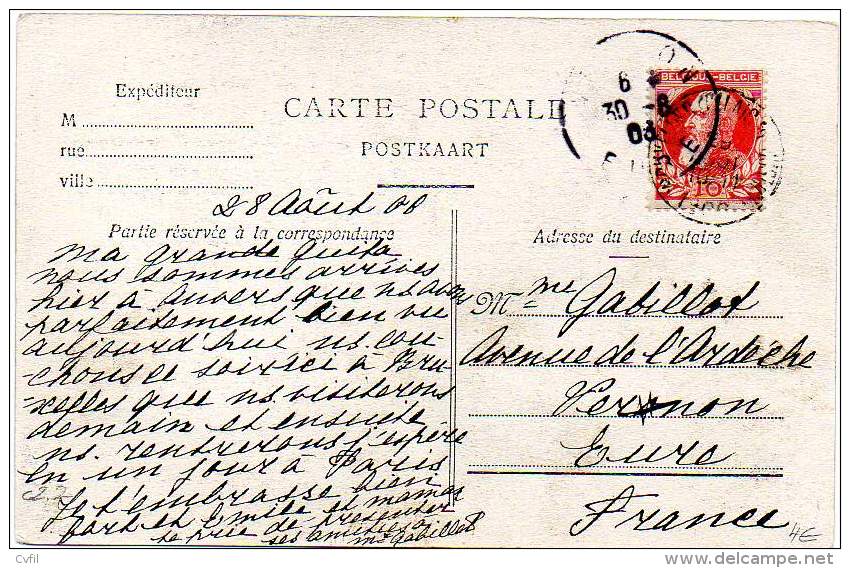 Expéditeur
M
rue
ville
CARTE POSTALE
POSTKAART
BELGIQUE-BELGIE
10
6
30 -8
08
28 Août 08
Partie réservée à la correspondance
Adresse du destinataire
ma grande Guita
nous sommes arrivés
hier à Anvers que ns avons
parfaitement bien vu
aujourd'hui ns. cou-
chons ce soir ici à Bru-
xelles que ns. visiterons
demain et ensuite
ns. rentrerons j'espère
en un jour à Paris
Je t'embrasse bien
fort et Emile et maman
te prie de présenter
ses amitiés à
Mme Gabillot
Mme Gabillot
Avenue de l'Ardèche
Vernon
Eure
France
4€
Cvfil
www.delcampe.net